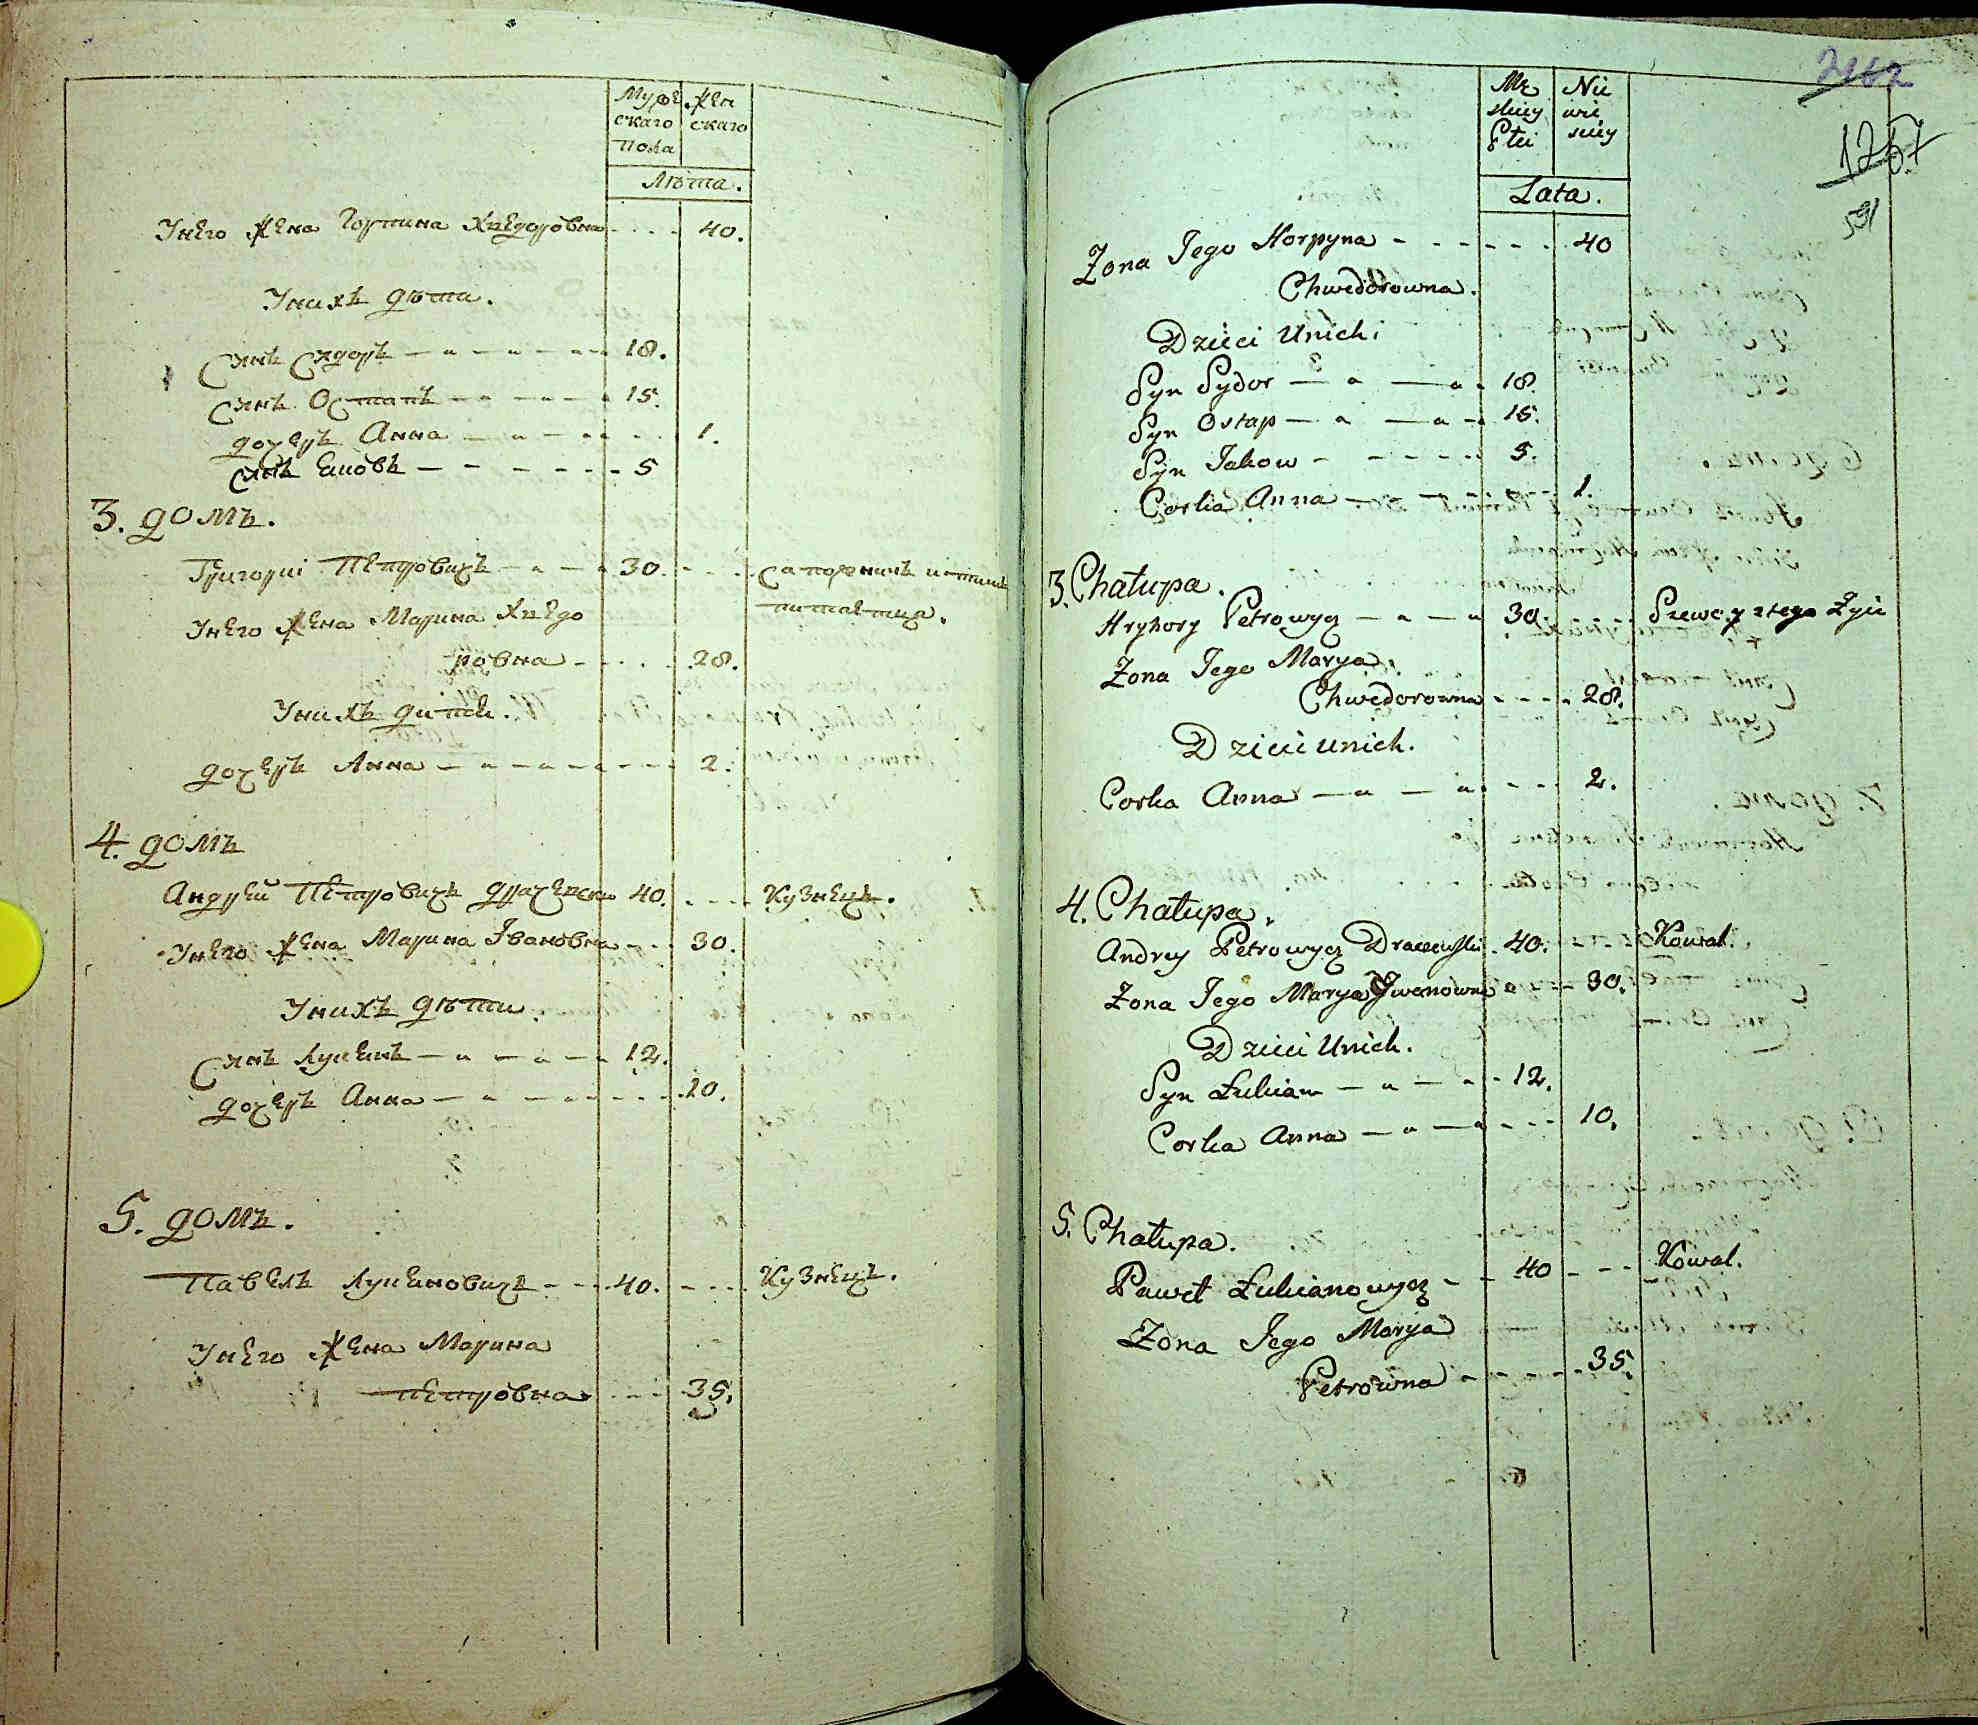 Мужескаго Пола
Женскаго
Лѣта.
Унего жена Горпина Хведоровна 40.
Унихъ дѣти.
Сынъ Сидоръ 18.
Сынъ Остапъ 15.
дочеръ Анна 1.
Сынъ Еаковъ 5
3. домъ.
Григорïi Петровичъ 30. Сапожникъ и тимъ
питаетца.
Унего жена Марина Хведо
ровна 28.
Унихъ дити.
дочеръ Анна 2.
4. домъ
Андрей Петровичъ Драчевски 40. Кузнецъ.
Унего жена Марина Iвановна 30.
Унихъ дѣти.
Сынъ Лукеянъ 12.
дочеръ Анна 10.
5. домъ.
Павелъ Лукеановичъ 40. Кузнецъ.
Унего жена Марина
петровна 35.
2162
1257
591
Mę
skiey
Płci
Nie
wie
skiey
Lata.
Zona Jego Horpyna 40
Chwedorowna.
Dzieci Unich:
Syn Sydor 18.
Syn Ostap 15.
Syn Jakow 5.
Corka Anna 1.
3. Chałupa.
Hryhory Petrowycz 30. Szewc y z tego Żyie
Zona Jego Marya
Chwedorowna 28.
Dzieci unich.
Corka Anna 2.
4. Chałupa.
Andrey Petrowycz Draczewski 40. Kowal.
Zona Jego Marya Jwanowna 30.
Dzieci Unich.
Syn Łukian 12.
Corka Anna 10.
5. Chałupa.
Paweł Łukianowycz 40 Kowal.
Zona Jego Marya
Petrowna 35.